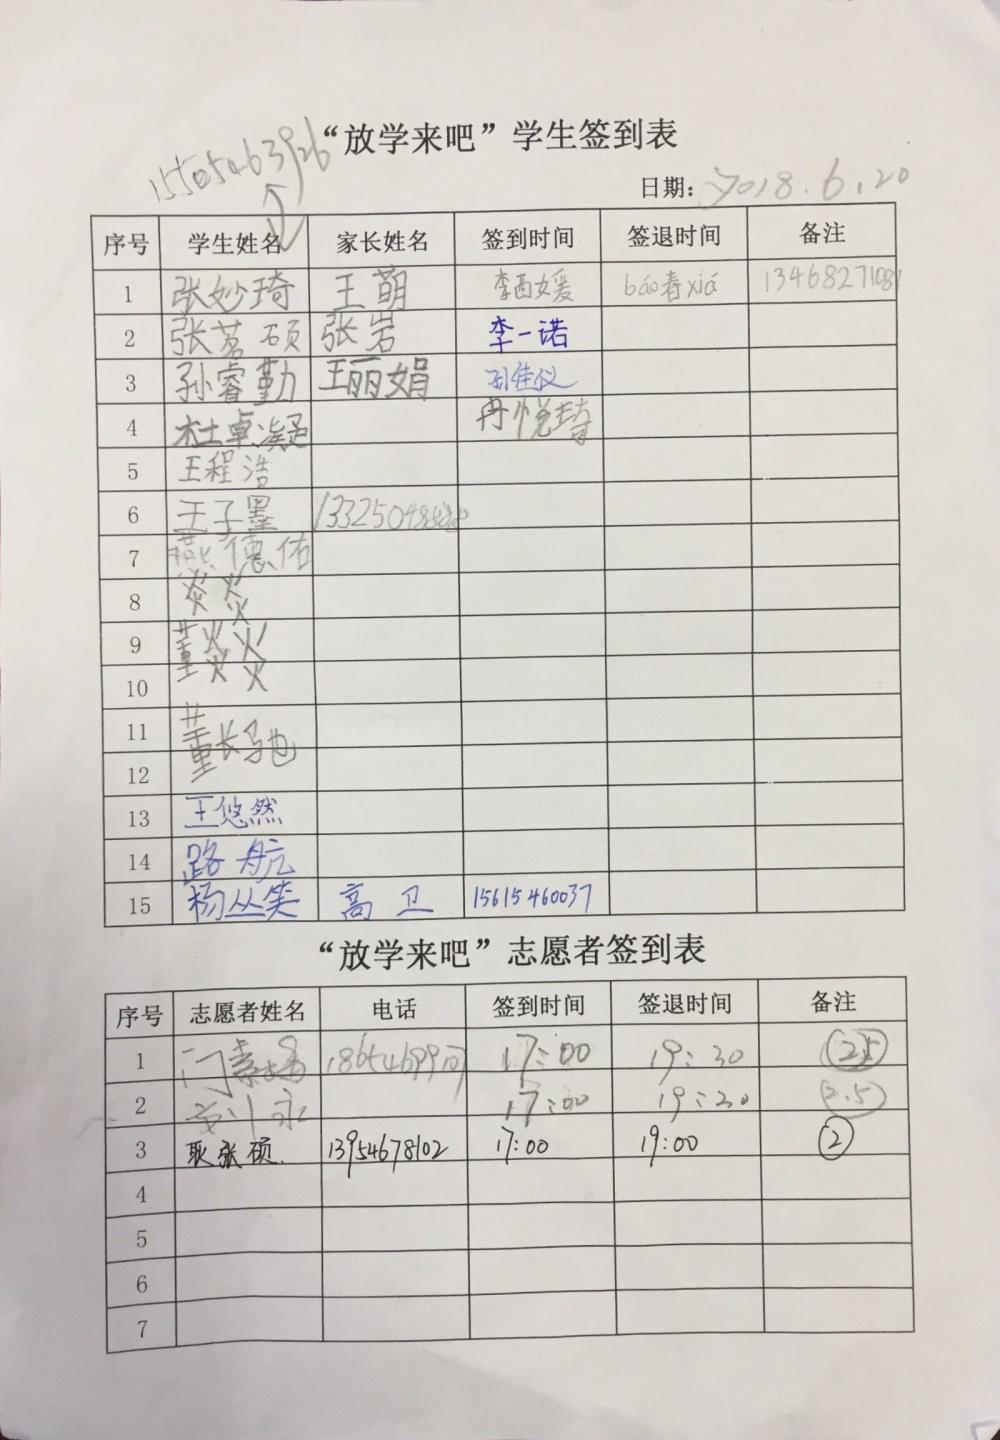 “放学来吧”学生签到表
15505463926
日期: 2018.6.20
序号 学生姓名 家长姓名 签到时间 签退时间 备注
1 张妙琦 王萌 李西媛 báo春xiá
2 张茗硕 张岩 李一诺
3 孙睿勤 王丽娟 孙佳仪
4 杜卓凝 冉悦琦
5 王程浩
6 王子墨
7 燕德佑
8
9 董焱焱
10
11 董长驰
12
13 王悠然
14 路航
15 杨丛笑 高卫 15615460037
“放学来吧”志愿者签到表
序号 志愿者姓名 电话 签到时间 签退时间 备注
1 17:00 19:30 2.5
2 17:00 19:30 2.5
3 耿张硕. 13954678102 17:00 19:00 2
4
5
6
7